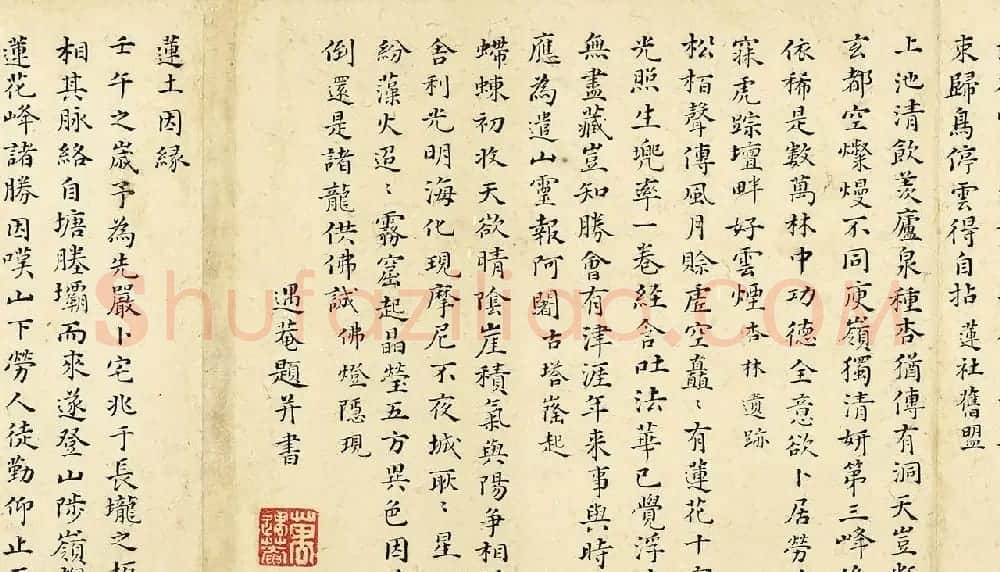 束歸鳥停雲得自拈 蓮社舊盟
上池清飲羨廬泉種杏猶傳有洞天豈
玄都空燦熳不同庾嶺獨清妍第三峰
依稀是數萬林中功德全意欲卜居勞
寐虎踪壇畔好雲煙 杏林遺跡
松栢聲傳風月賒虛空矗〻有蓮花十
光照生兜率一卷經含吐法華已覺浮
無盡藏豈知勝會有津涯年來事與時
應為遣山靈報阿閦 古塔嶐起
螮蝀初收天欲晴陰崖積氣與陽爭相
舍利光明海化現摩尼不夜城耿〻星
紛藻火迢〻霧窟起晶瑩五方異色因
倒還是諸龍供佛誠 佛燈隱現
遇菴題并書
蓮土因緣
壬午之歲予為先嚴卜宅兆于長壠之
相其脉絡自塘塍壩而來遂登山陟嶺
蓮花峰諸勝因嘆山下勞人徒勤仰止
Shufaziliao.COM